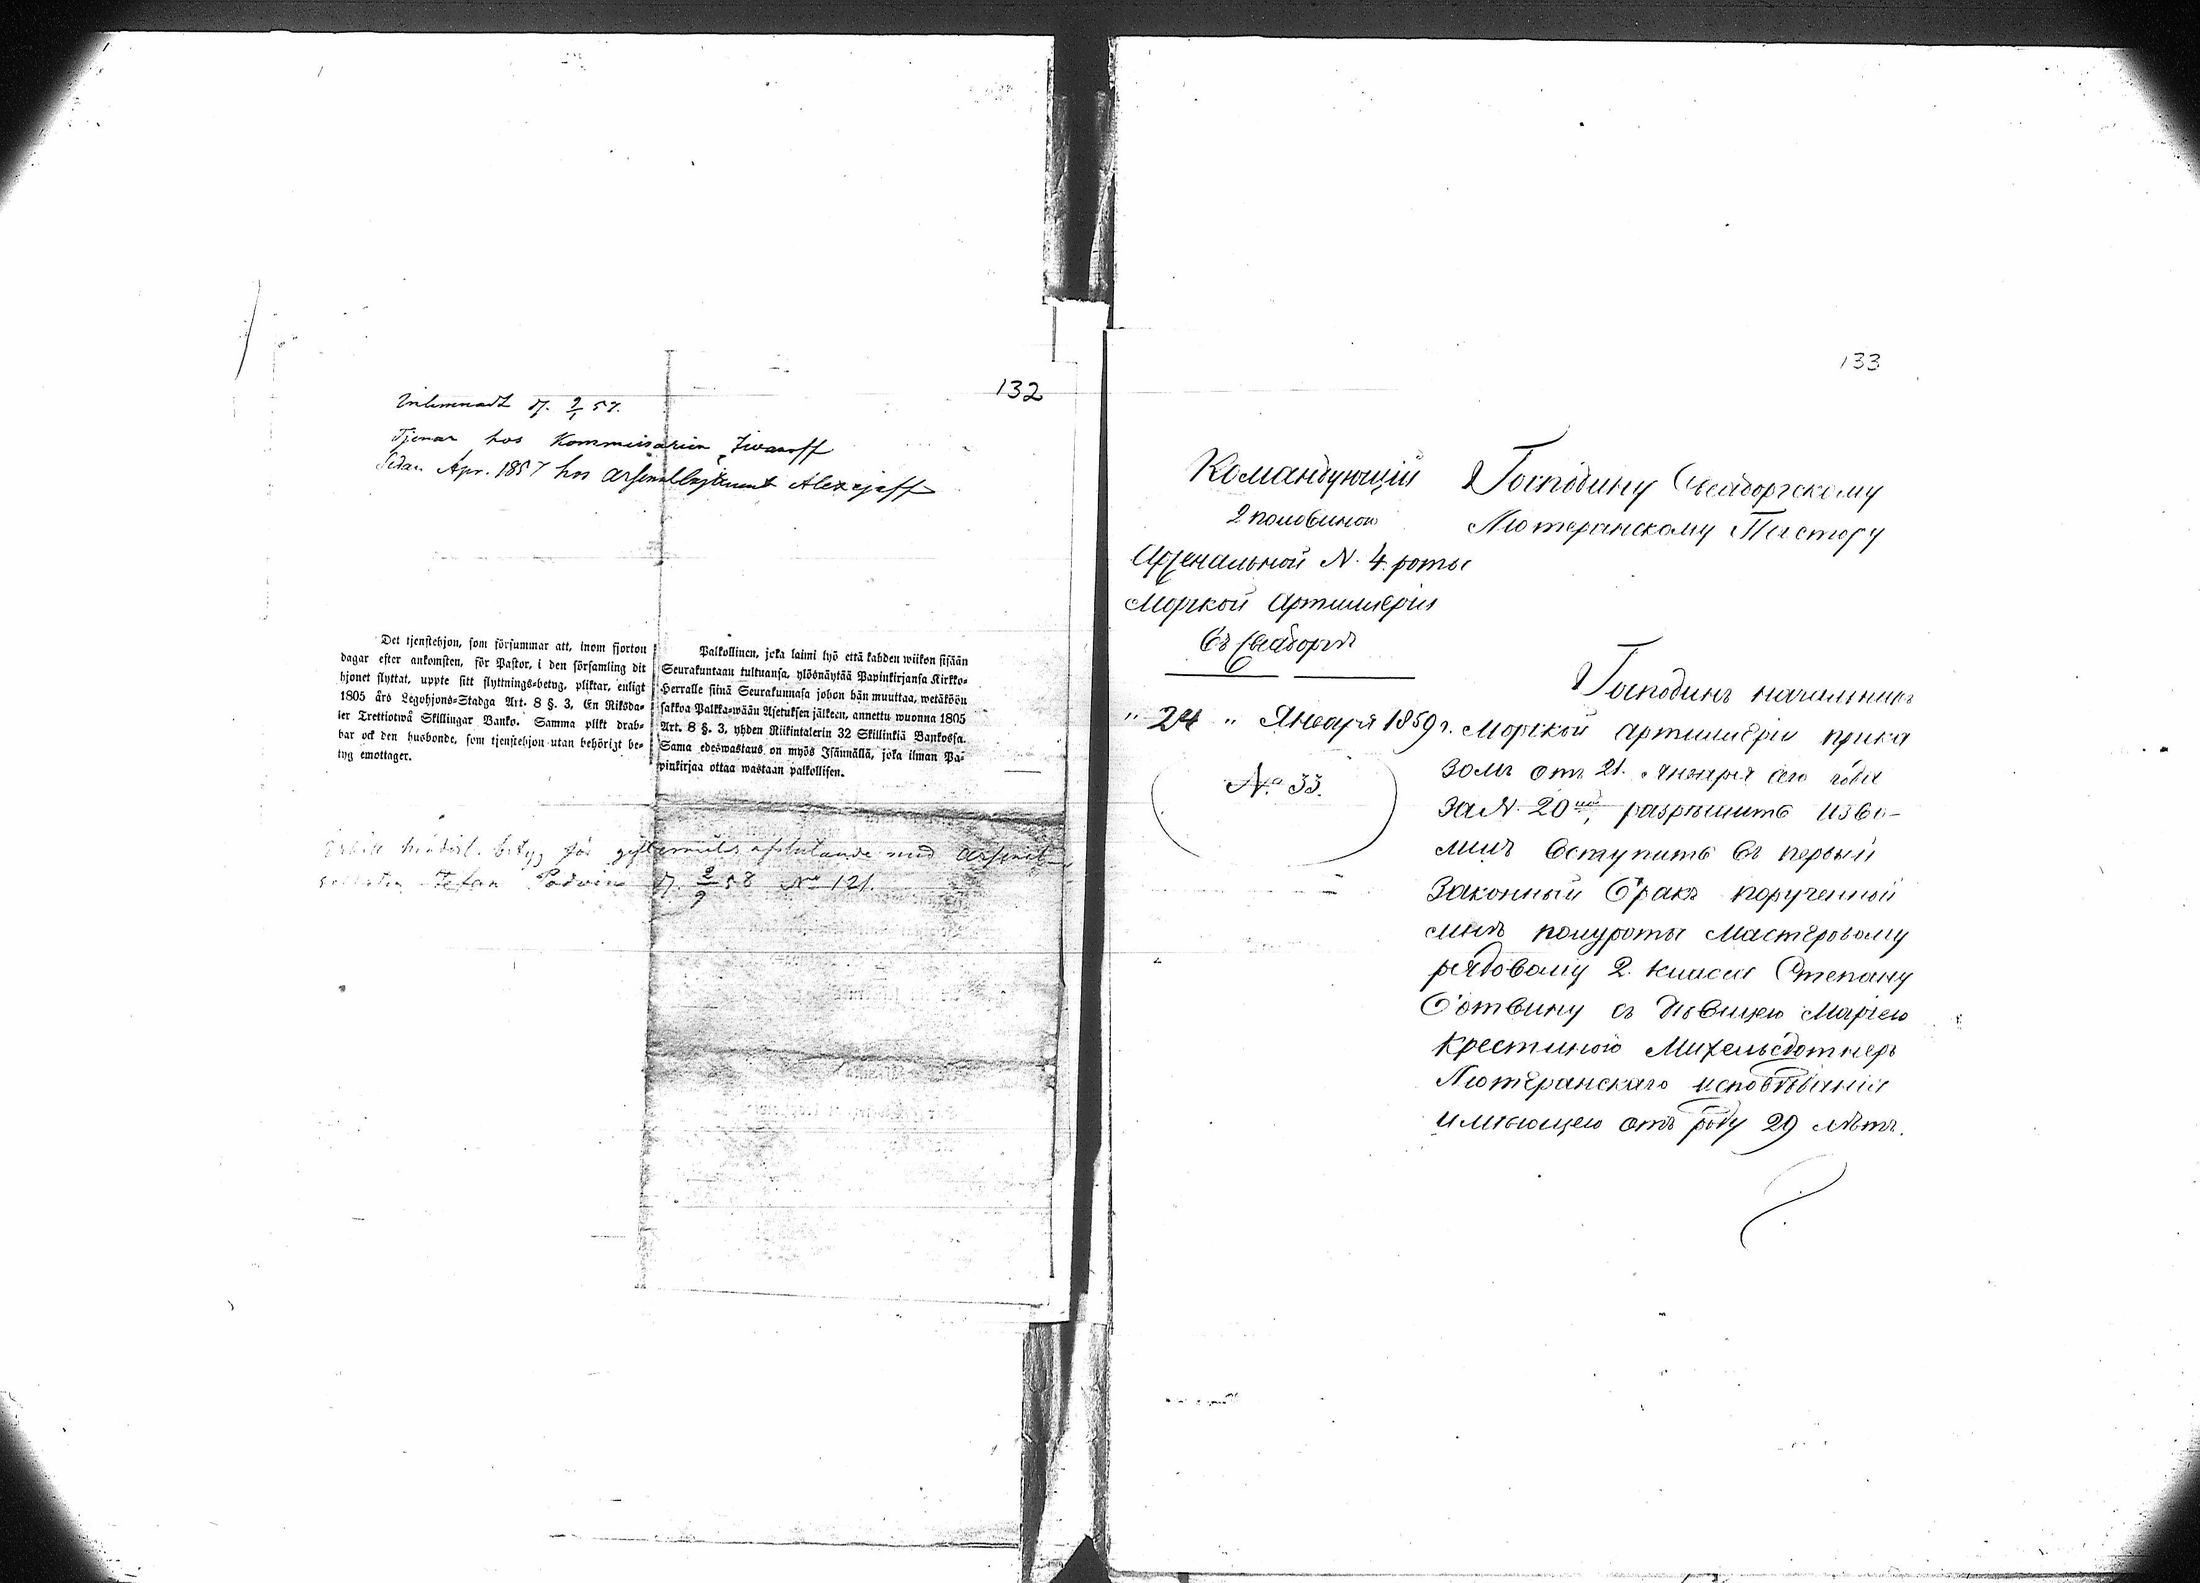 132
Inlemnadt d. 9/1 57.
Tjenar hos Kommissarien Iwanoff
Sedan Apr. 1857 hos Arsenallöjtenant Alexejeff
Det tjenstehjon, som försummar att, inom fjorton
dagar efter ankomsten, för Pastor, i den församling dit
hjonet flyttat, uppte sitt flyttnings-betyg, pliktar, enligt
1805 års Legohjons-Stadga Art. 8 §. 3, En Riksda-
ler Trettiotwå Skillingar Banko. Samma plikt drab-
bar ock den husbonde, som tjenstehjon utan behörigt be-
tyg emottager.
Palkollinen, joka laimi lyö että kahden wiikon sisään
Seurakuntaan tultuansa, ylösnäytää Papinkirjansa Kirkko-
Herralle siinä Seurakunnasa johon hän muuttaa, wetäköön
sakkoa Palkka-wään Asetuksen jälkeen, annettu wuonna 1805
Art. 8 §. 3, yhden Riikintalerin 32 Skillinkiä Bankossa.
Sama edeswastaus on myös Isännällä, joka ilman Pa-
pinkirjaa ottaa wastaan palkollisen.
betyg för giftermåls afslutande med Arsenal-
soldaten Stefan Podvin d. 2/9 58 No 121.
133
Командующій
2 половиною
Арсенальной N. 4. роты
Морской Артиллеріи
Въ Свеаборгѣ
" 24 " Января 1859 г.
No. 33.
Господину Свеаборгскому
Лютеранскому Пастору
Господинъ начальникъ
Морской Артиллеріи прика
зомъ отъ 21. Января сего года
за N. 20мъ, разрѣшить изво-
лилъ вступить въ первый
законный бракъ порученной
мнѣ полуроты мастеровому
рядовому 2. класса Степану
Ботвину съ дѣвицею Маріею
Крестиною Михельсдоттеръ
Лютеранскаго исповѣданія
имѣющею отъ роду 29 лѣтъ.